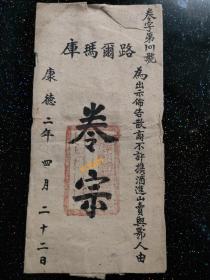 叁字第101號
為出示佈告散商不許攜酒進山賣與鄂人由
庫瑪爾路
卷宗
康德二年四月二十二日